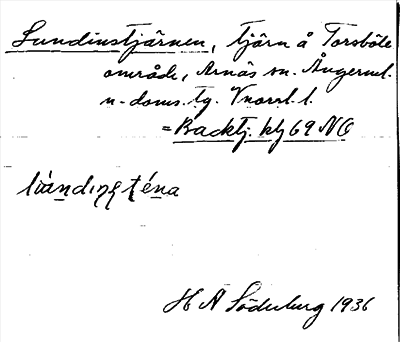 Lundinstjärnen, tjärn å Torsböle
område, Arnäs sn. Ångerml.
n. doms. tg. Vnorrl. l.
= Backtj. kbl 69 NO
H A Söderberg 1936